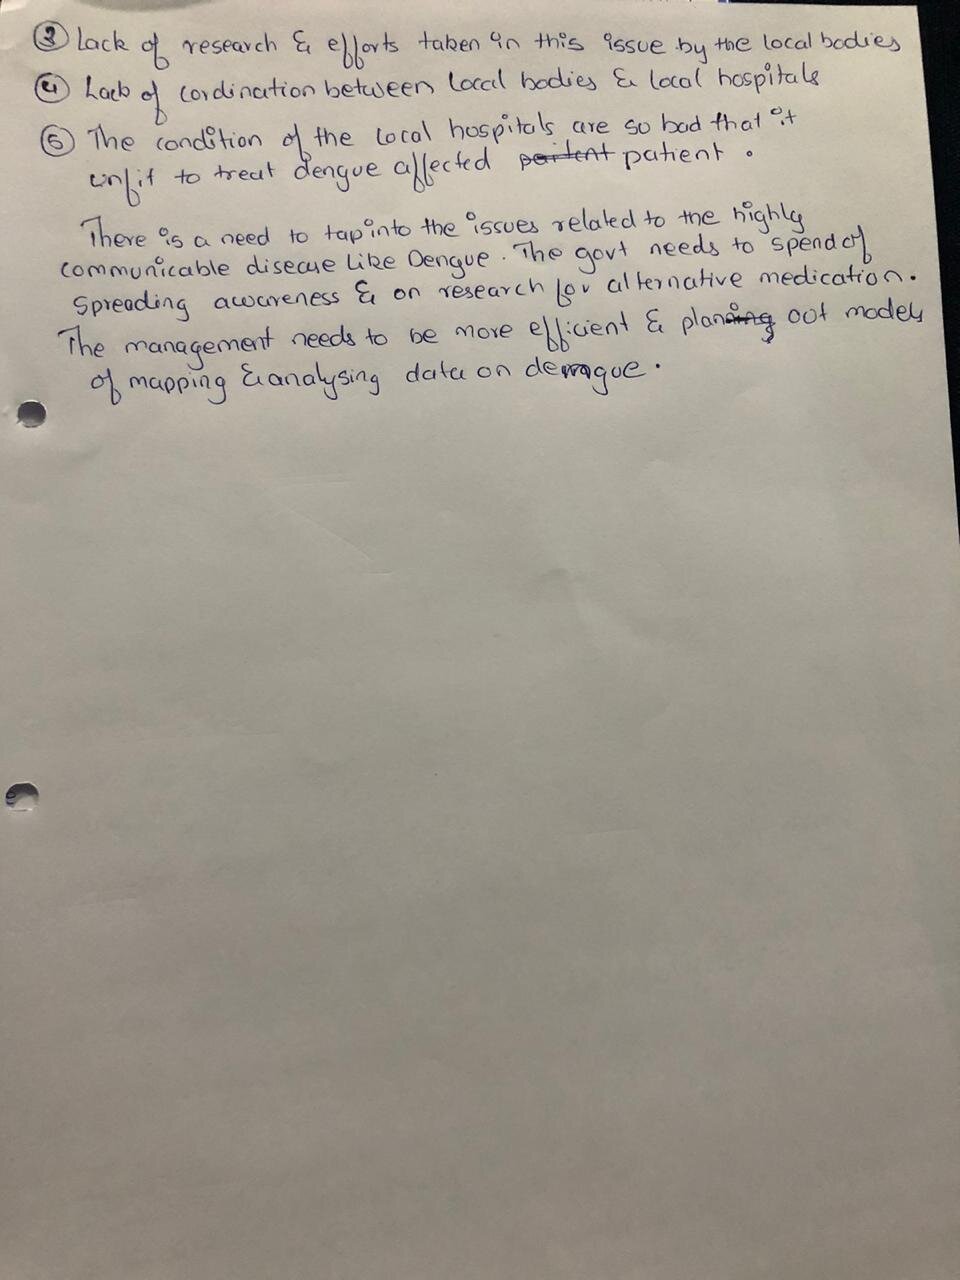 ③ Lack of research & efforts taken in this issue by the local bodies
④ Lack of cordination between local bodies & local hospitals
⑤ The condition of the local hospitals are so bad that it
unfit to treat dengue affected patient .
There is a need to tap into the issues related to the highly
communicable disease like Dengue. The govt needs to spend of
Spreading awareness & on research for alternative medication.
The management needs to be more efficient & plan out models
of mapping & analysing data on dengue.